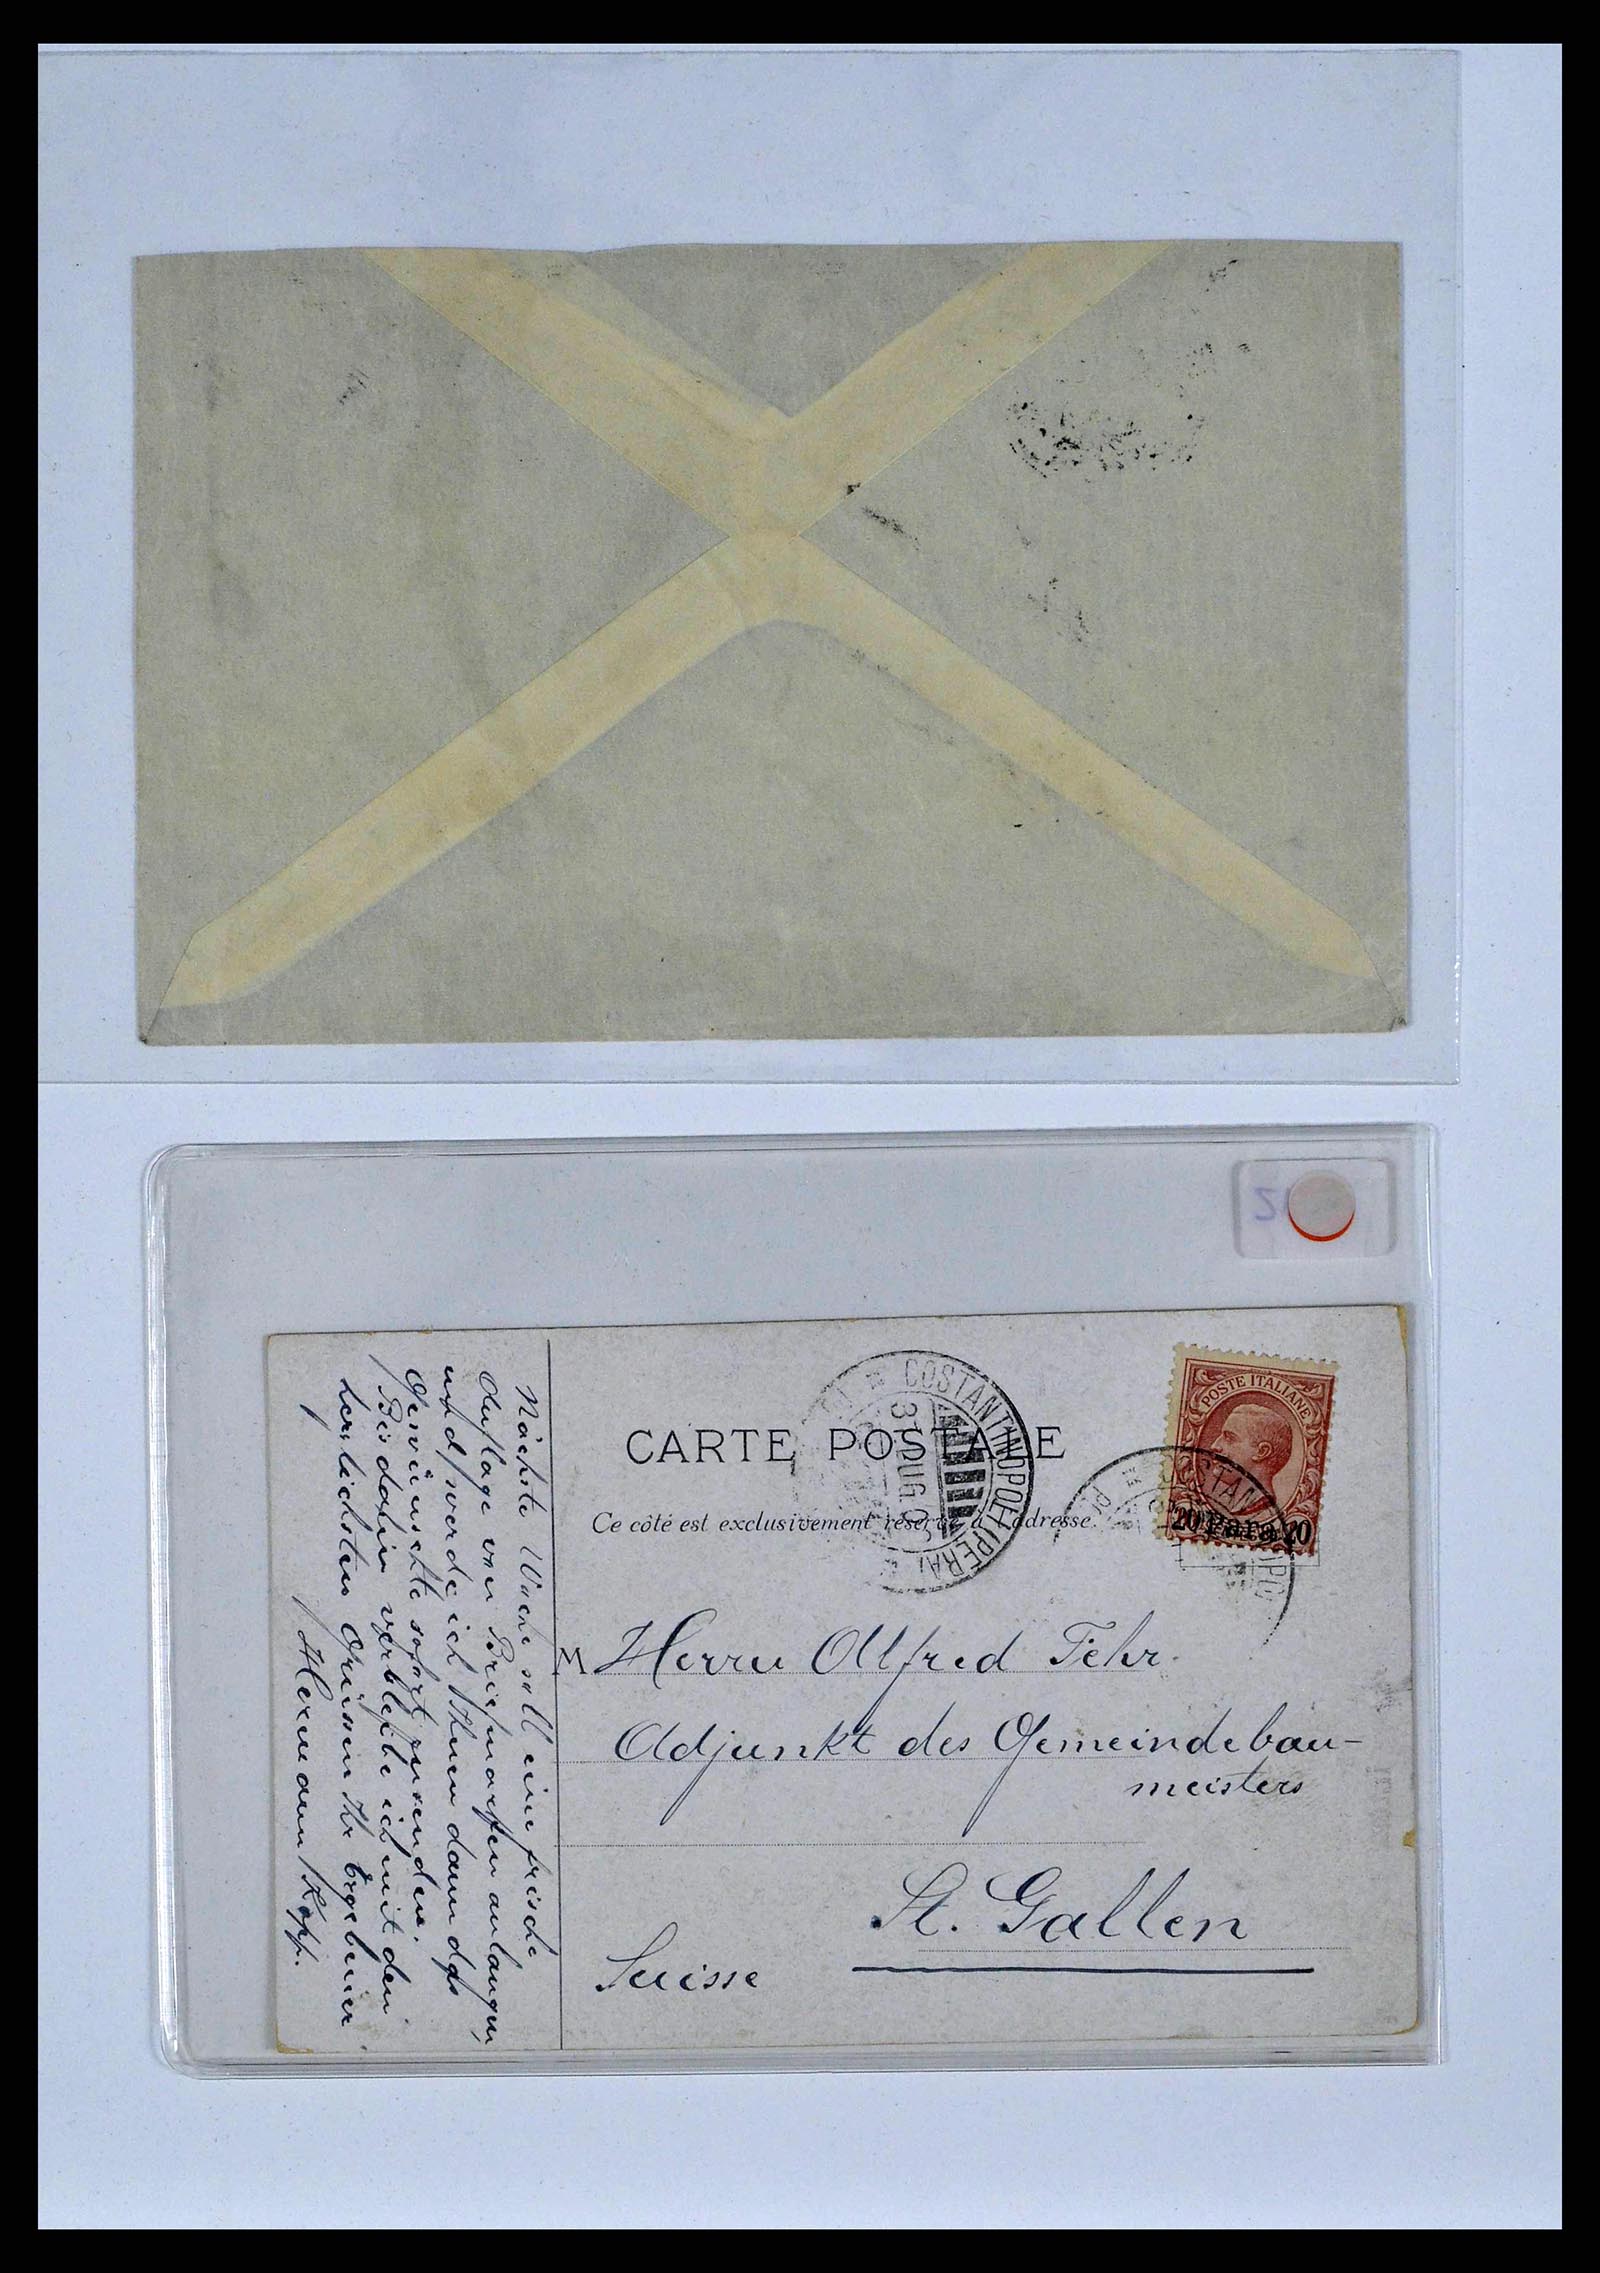 CARTE POSTALE
Ce côté est exclusivement réservé à l'adresse.
COSTANTINOPOLI (PERA)
POSTE ITALIANE
20 Para 20
M Herrn Alfred Fehr.
Adjunkt des Gemeindebau-
meisters
St. Gallen
Suisse
Nächste Woche soll eine frische
Auflage von Briefmarken anlangen,
und werde ich Ihnen dann das
Gewünschte sofort zusenden.
Bis dahin verbleibe ich mit den
herzlichsten Grüssen Ihr Ergebener
Hermann Kopp.